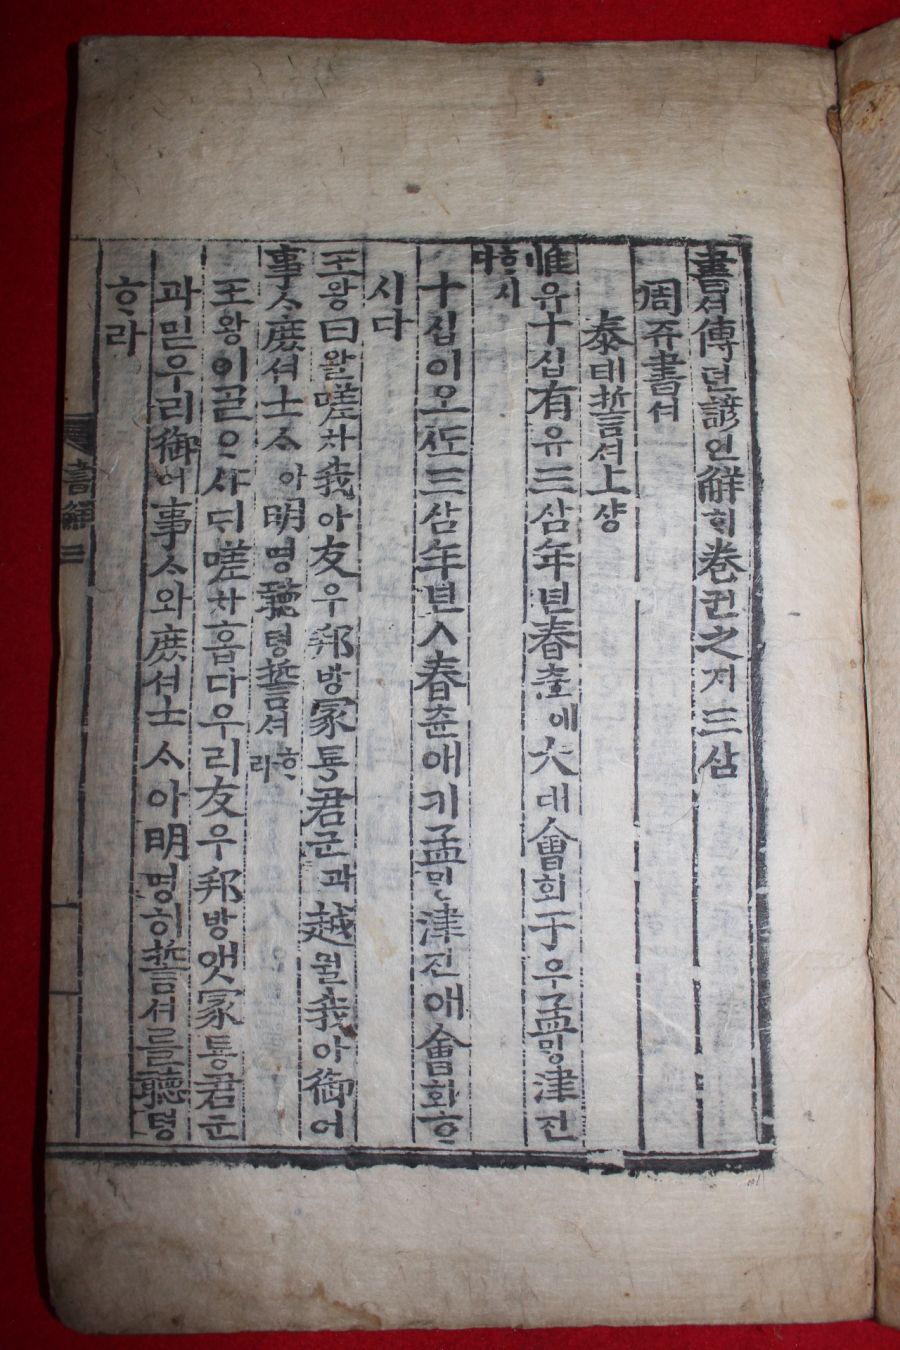 書셔傳뎐諺언解ᄒᆡ卷권之지三삼
周쥬書셔
泰태誓셔上샹
惟유十십有유三삼年년春츈에大대會회于우孟ᄆᆡᆼ津진ᄒᆞ시다
十십이오ᄯᅩ三삼年년人春츈애기孟ᄆᆡᆼ津진애會회ᄒᆞ
시다
王왕曰왈嗟차我아友우邦방冢통君군과越월我아御어
事ᄉᆞ庶셔士ᄉᆞ아明명聽텽誓셔ᄒᆞ라
王왕이ᄀᆞᆯᄋᆞ샤ᄃᆡ嗟차홉다우리友우邦방앳冢통君군
과밋우리御어事ᄉᆞ와庶셔士ᄉᆞ아明명히誓셔를聽텽
ᄒᆞ라
書解 三